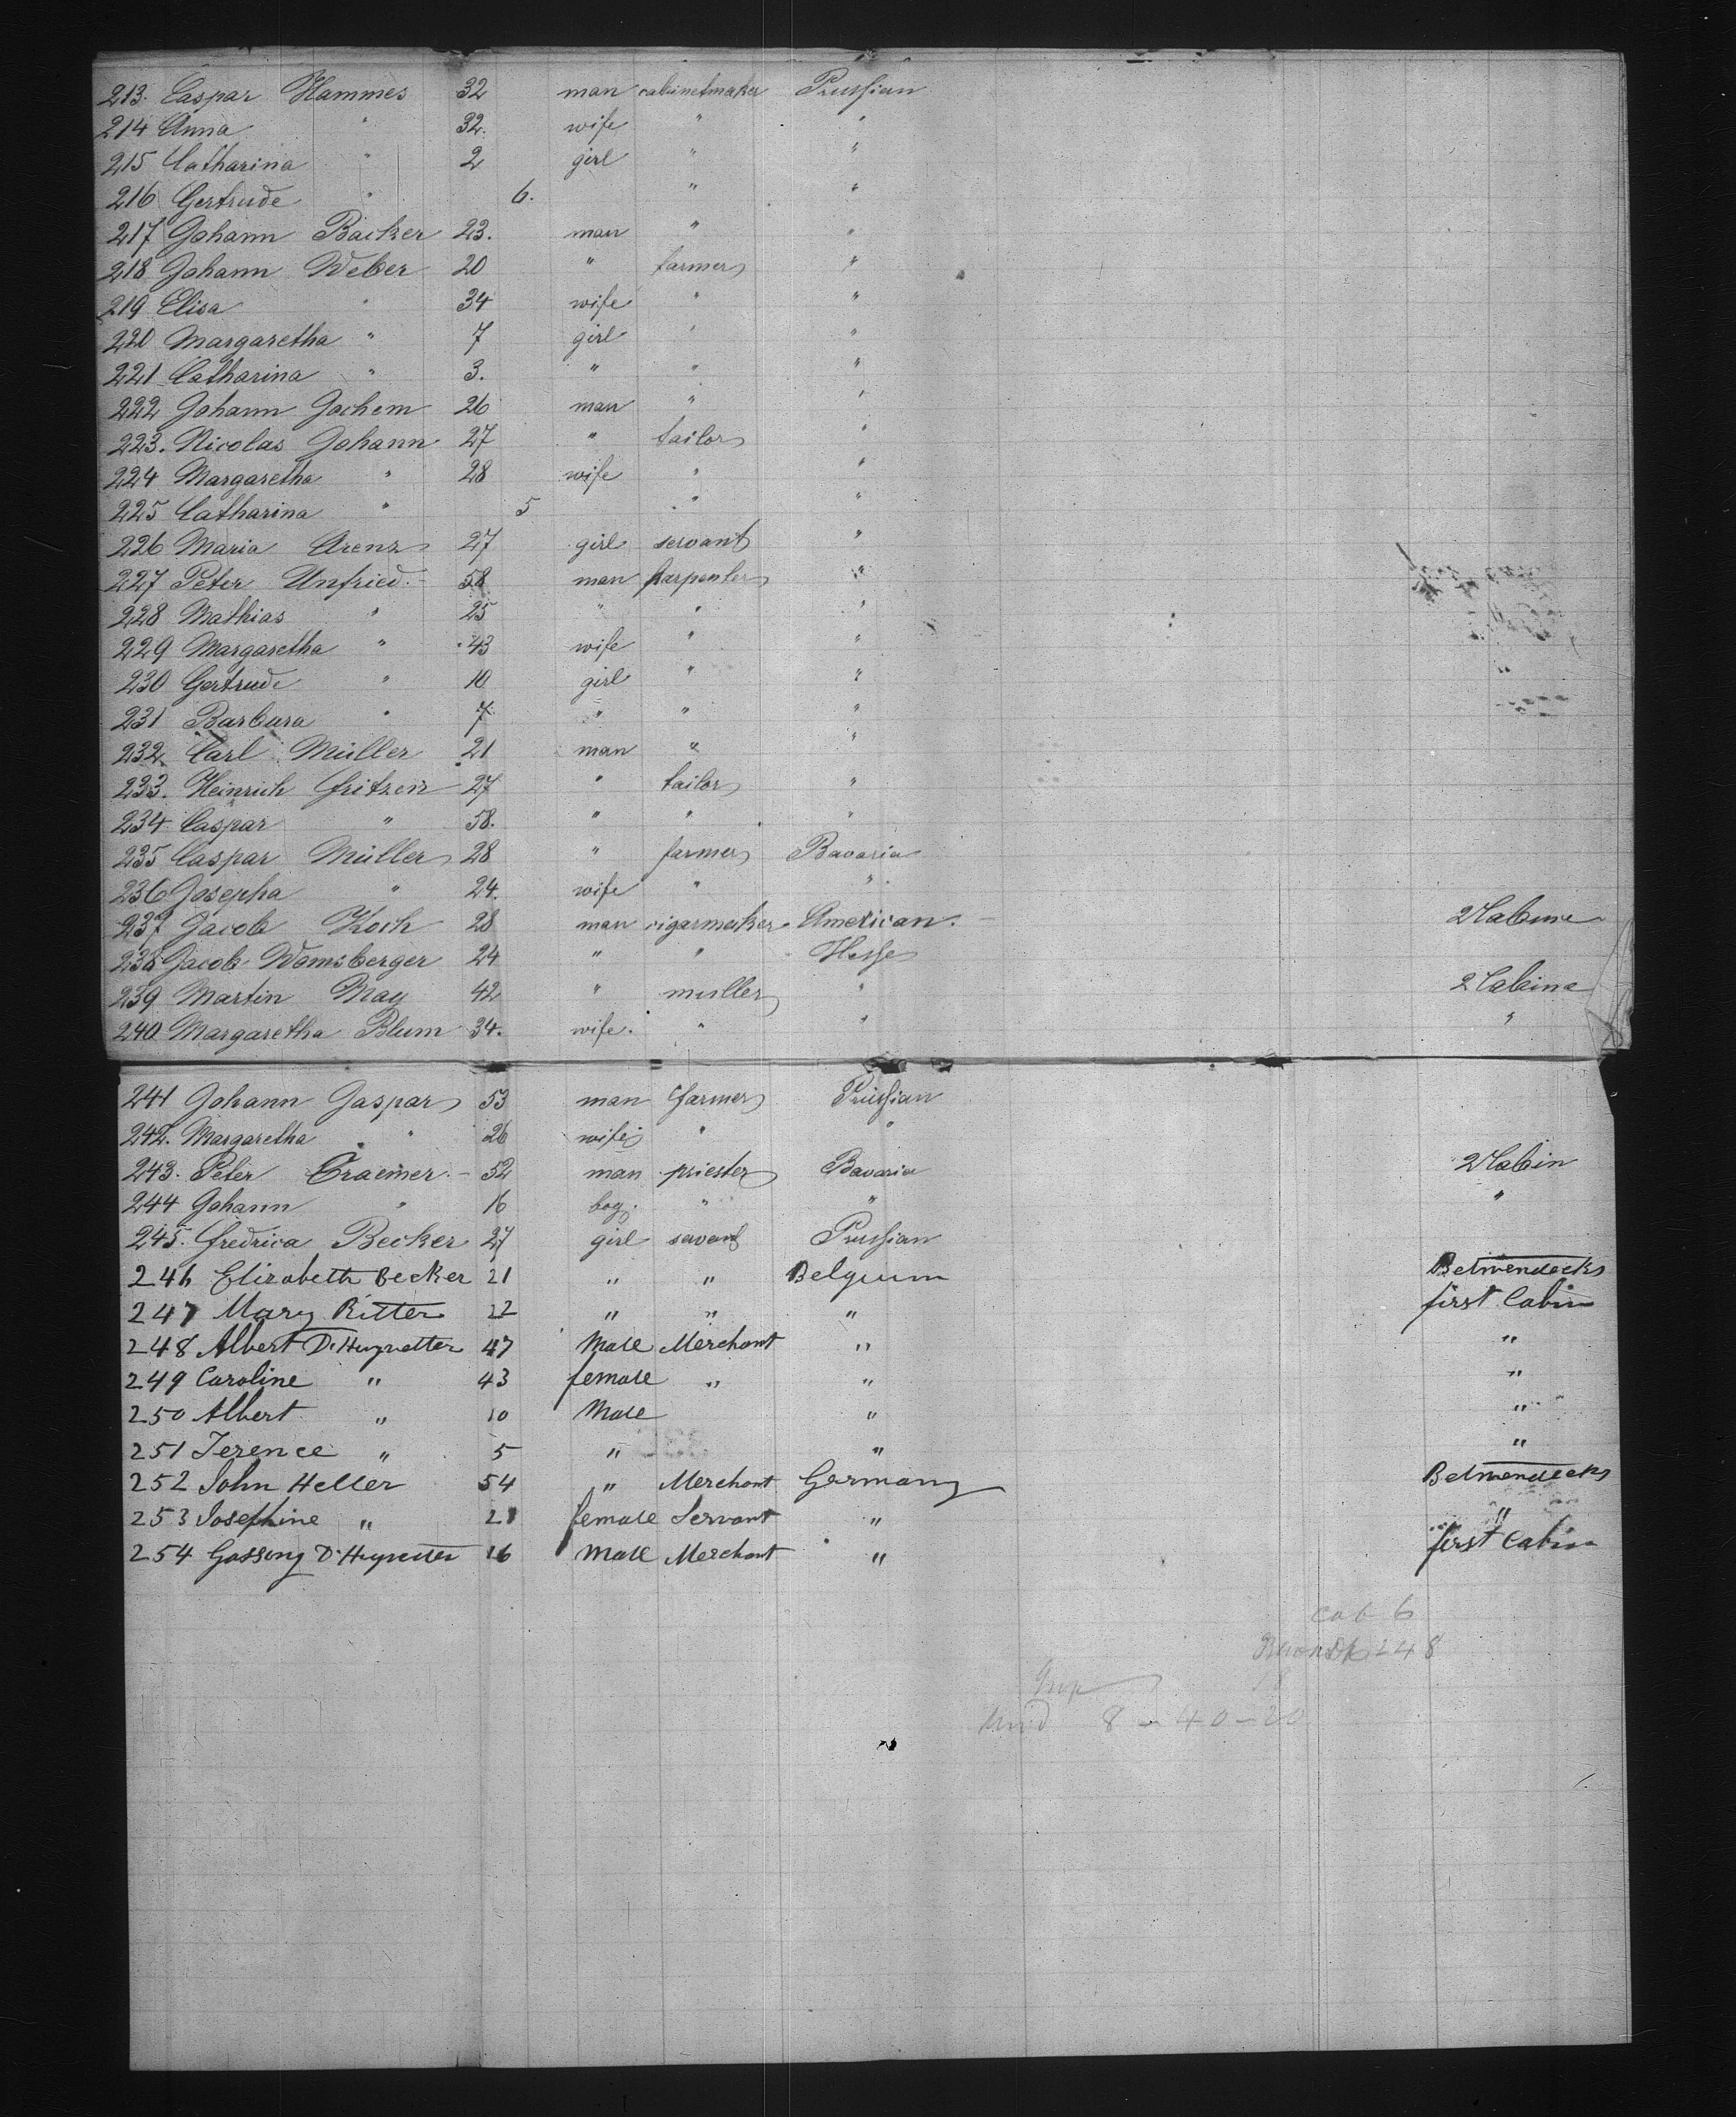 213. Caspar Hammes 32 man cabinetmaker Prussian
214 Anna " 32. wife " "
215 Catharina " 2 girl " "
216 Gertrude " 6. " "
217 Johann Backer 23. man " "
218 Johann Weber 20 " farmer "
219 Elisa " 34 wife " "
220 Margaretha " 7 girl " "
221 Catharina " 3. " " "
222 Johann Jochem 26 man " "
223. Nicolas Johann 27 " tailor "
224 Margaretha " 28 wife " "
225 Catharina " 5 " "
226 Maria Arenz 27 girl servant "
227 Peter Unfried. 58 man karpenter "
228 Mathias " 25 " " "
229 Margaretha " 43 wife " "
230 Gertrude " 10 girl " "
231 Barbara " 7 " " "
232 Carl Müller 21 man " "
233. Heinrich Fritzen 27 " tailor "
234 Caspar " 58. " " "
235 Caspar Müller 28 " farmer Bavaria
236 Josepha " 24. wife " "
237 Jacob Koch 28 man cigarmaker American. 2 Cabine
238 Jacob Womsberger 24 " " Hesse
239 Martin May 42 " muller " 2 Cabine
240 Margaretha Blum 34. wife. " " "
241 Johann Jaspar 53 man farmer Prussian
242. Margaretha " 26 wife " "
243. Peter Craemer 52 man priester Bavaria 2 Cabin
244 Johann " 16 boy. " " "
245. Fredrica Becker 27 girl servant Prussian
246 Elizabeth Becker 21 " " Belgium Betwendecks
247 Mary Ritter 22 " " " first Cabin
248 Albert D'Huyvetter 47 Male Merchant " "
249 Caroline " 43 female " " "
250 Albert " 10 Male " "
251 Terence " 5 " " "
252 John Heller 54 " Merchant Germany Betwendecks
253 Josephine " 21 female Servant " "
254 Gossing D'Huyvetter 16 Male Merchant " first Cabin
cab 6
248
8 - 40 - 20